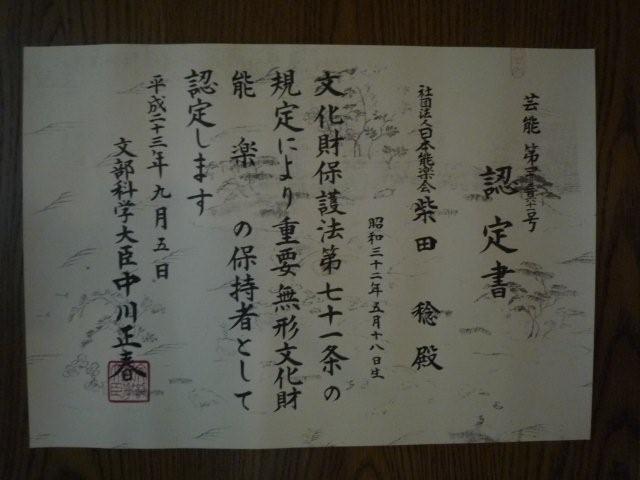 芸能 第
認定書
社団法人日本能楽会 柴田 稔 殿
昭和三十二年五月十八日生
文化財保護法第七十一条の
規定により重要無形文化財
能 楽 の保持者として
認定します
平成二十三年九月五日
文部科学大臣 中川正春